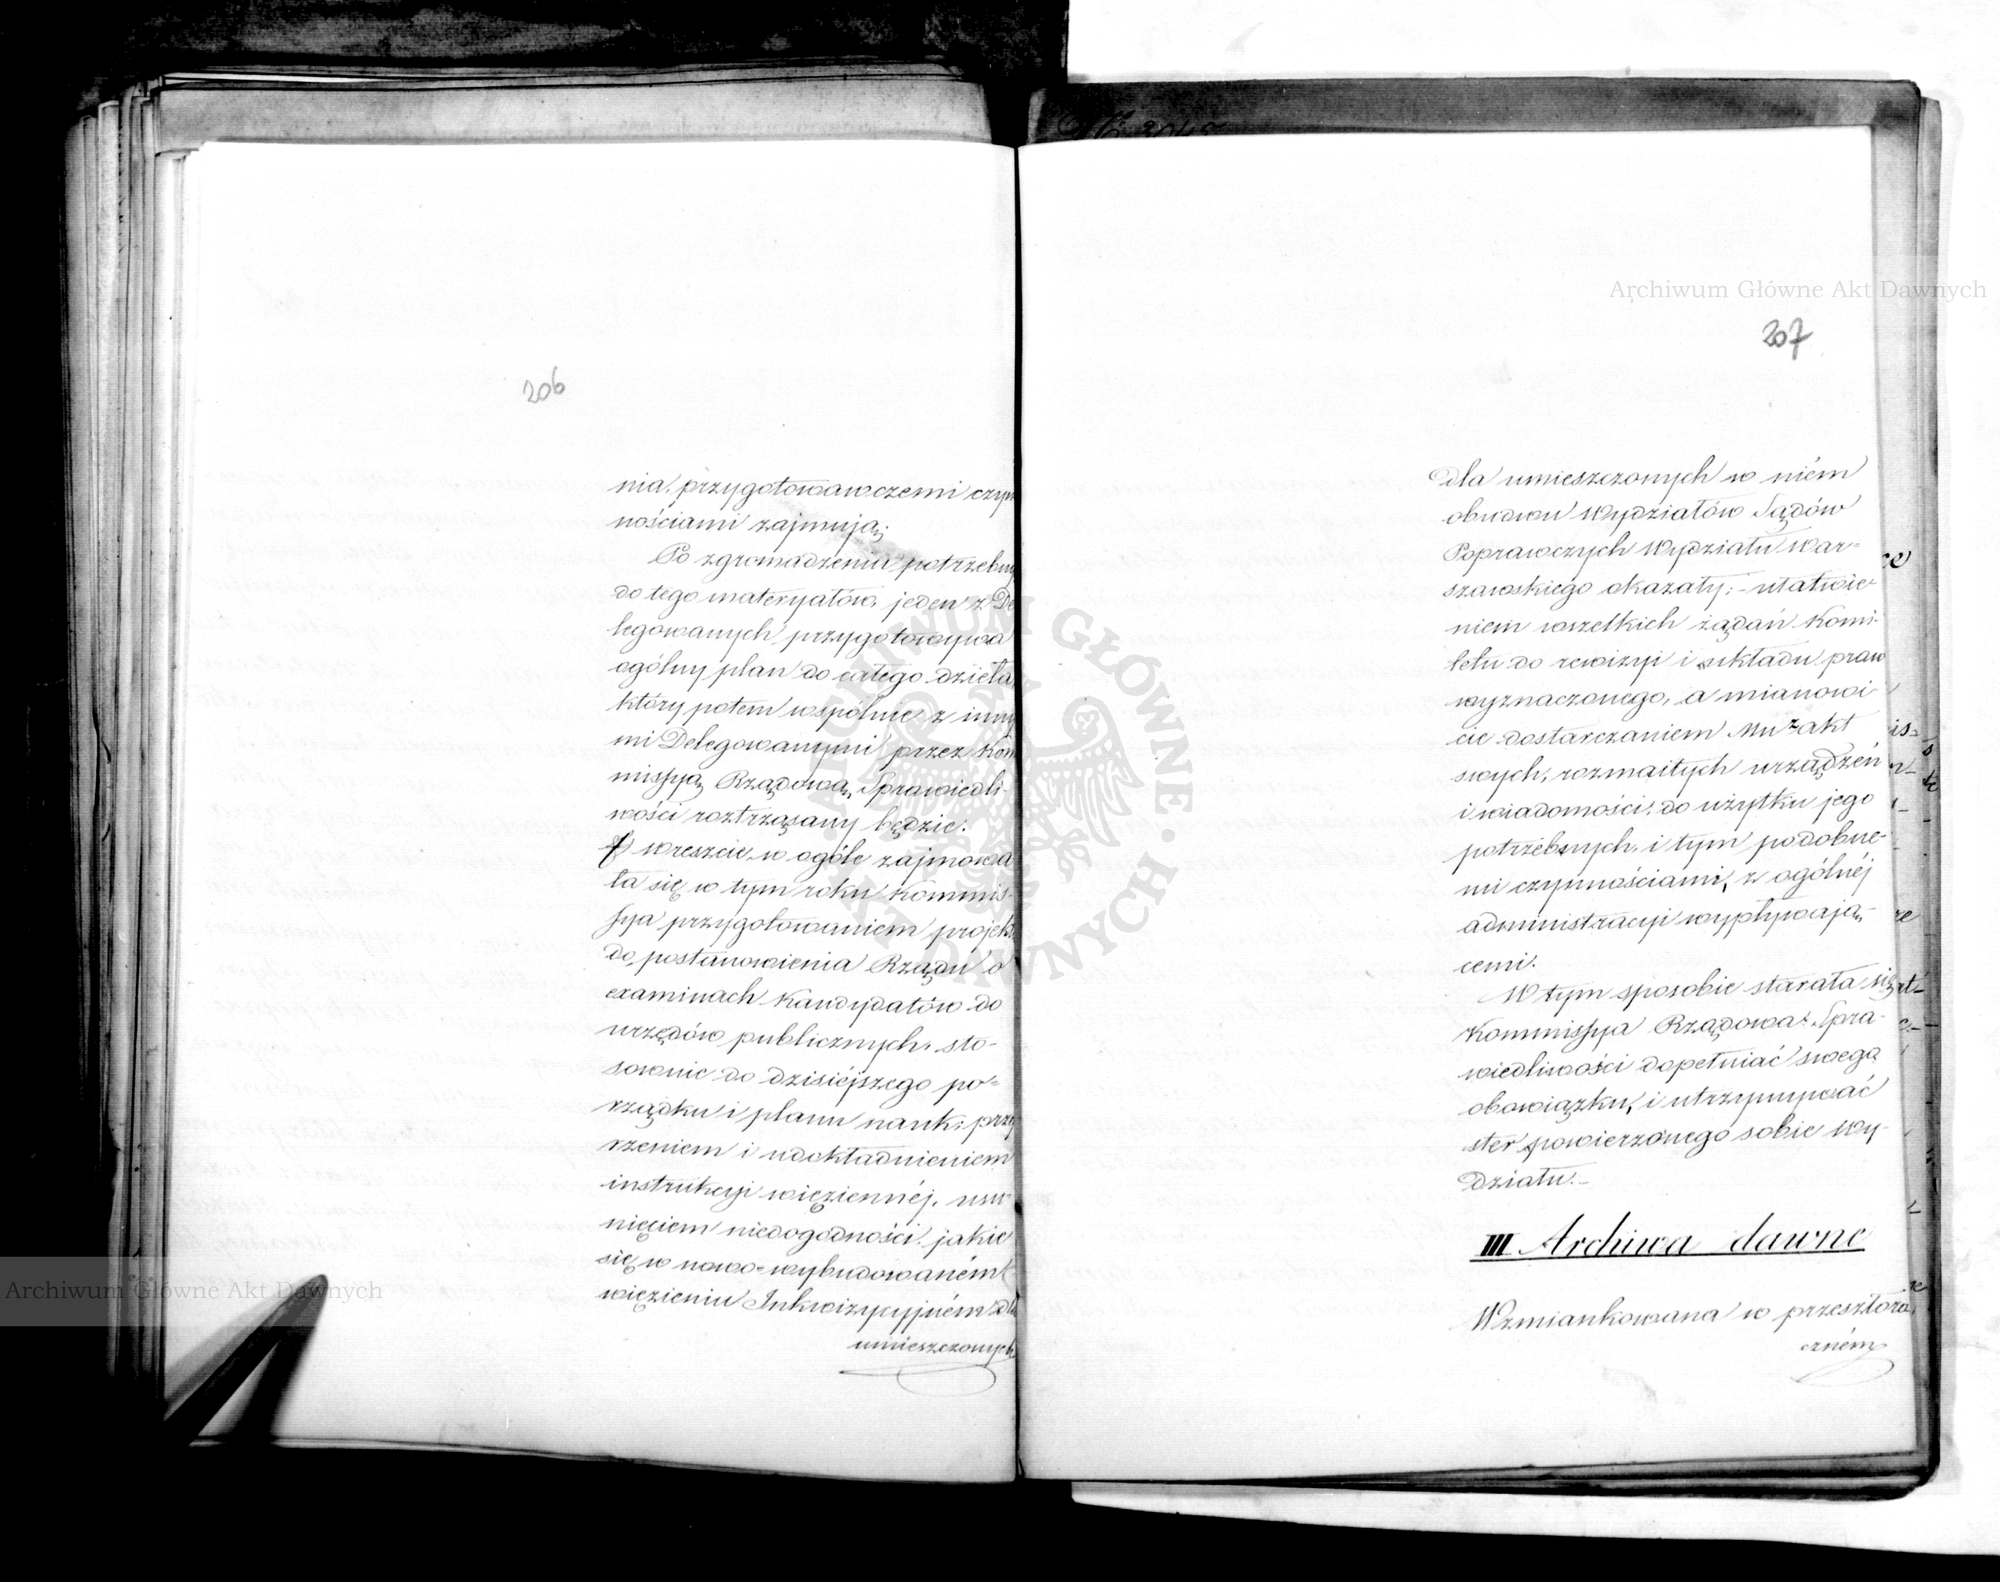 206
nia, przygotowawczemi czyn
nościami zajmują.
Po zgromadzeniu potrzebny
do tego materyałów, jeden z De
legowanych przygotowywa
ogólny plan do całego dzieła,
który potem wspólnie z inny
mi Delegowanymi przez Kom
missyą Rządową Sprawiedli-
wości roztrząsany będzie.
f) wreszcie w ogóle zajmowa
ła się w tym roku Kommis-
sya przygotowaniem projekt
do postanowienia Rządu o
examinach Kandydatów do
urzędów publicznych, sto-
sownie do dzisiéjszego po-
rządku i planu nauk; przy
rzeniem i udokładnieniem
instrukcyi więziennéj, usu-
nięciem niedogodności jakie
się w nowo-wybudowaném
więzieniu Inkwizycyjném dla
umieszczonych
207
dla umieszczonych w niém
obudwu Wydziałów Sądów
Poprawczych Wydziału War-
szawskiego okazały; - ułatwie-
niem wszelkich żądań Komi-
tetu do rewizyi i układu praw
wyznaczonego, a mianowi-
cie dostarczaniem Mu z akt
swych, rozmaitych urządzeń
i wiadomości, do użytku jego
potrzebnych, i tym podobne-
mi czynnościami, z ogólnéj
administracyi wypływają-
cemi.
W tym sposobie starała się
Kommissya Rządowa Spra-
wiedliwości dopełniać swego
obowiązku, i utrzymywać
ster powierzonego sobie Wy-
działu. -
III Archiwa dawne
Wzmiankowana w przeszłoro-
czném
Archiwum Główne Akt Dawnych
Archiwum Główne Akt Dawnych
ARCHIWUM GŁÓWNE AKT DAWNYCH